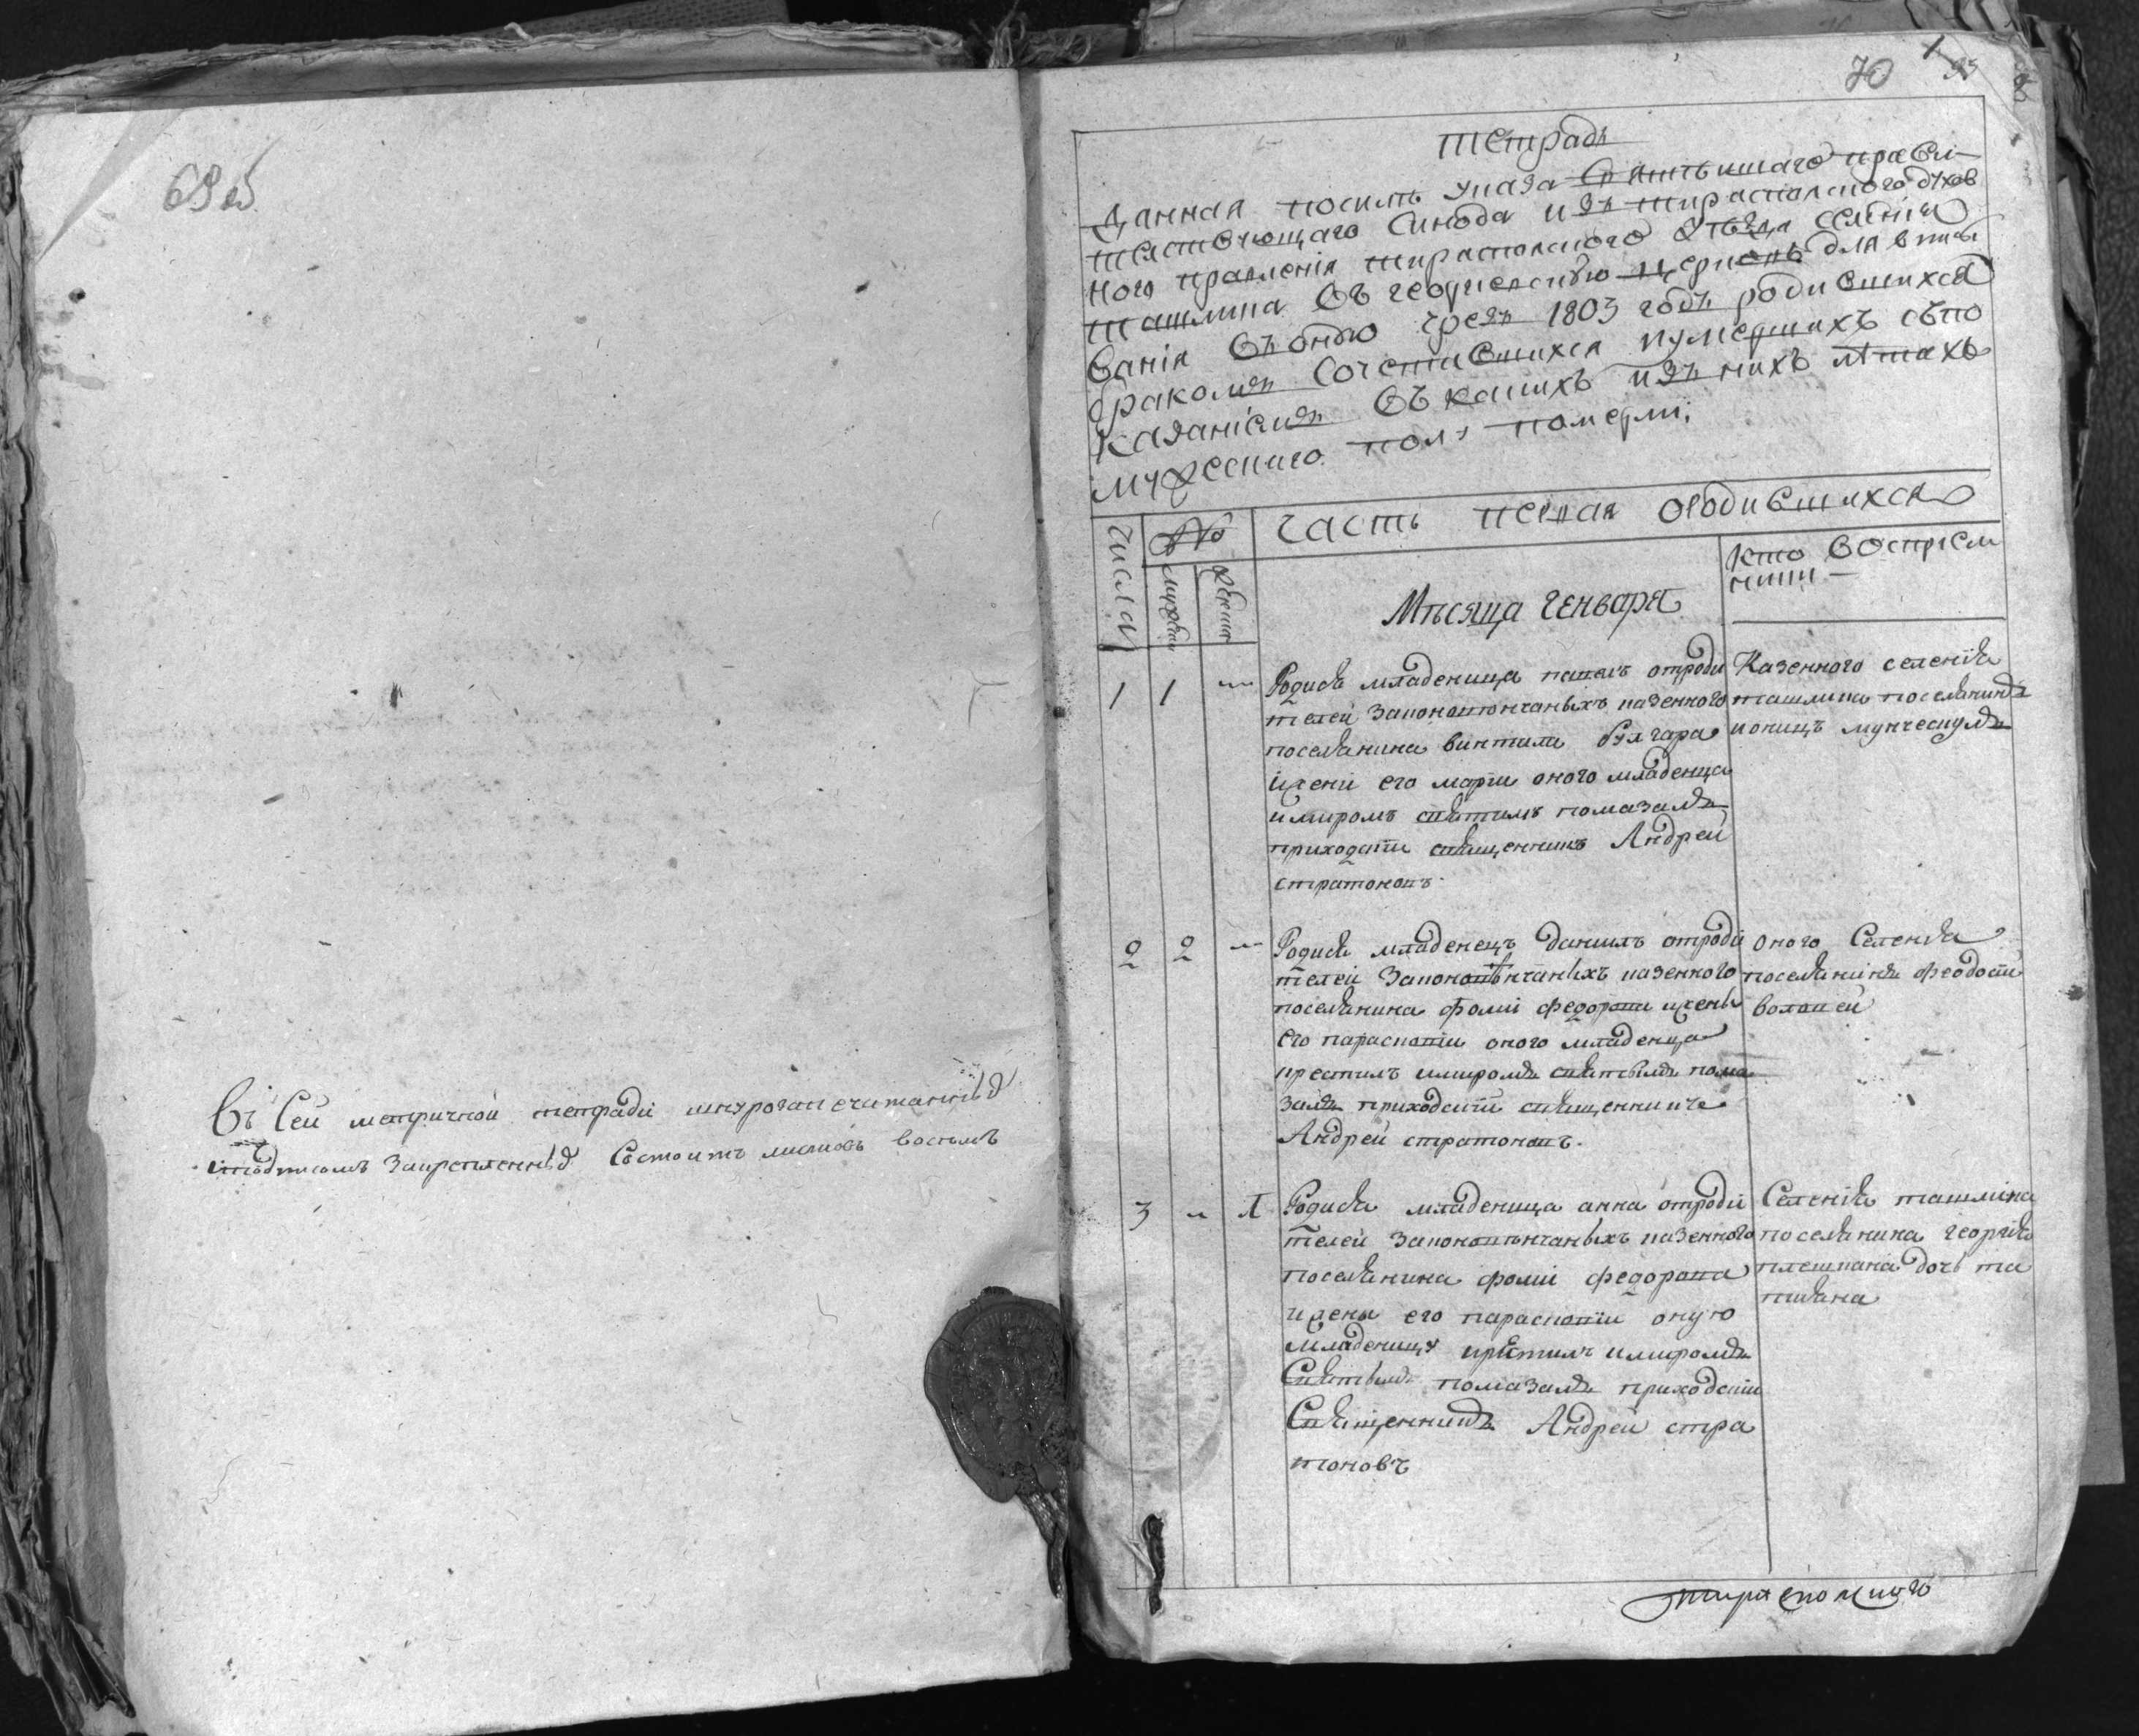 69 об
Въ сей метричной тетради шнурозапечатанной
иподписомъ закрепленной состоитъ листовъ восемъ
70
тетрадь
Данная посилѣ указа Святѣйшаго прави
тельствующаго Синода изъ тираспольского духов
ного правления тираспольского уѣзда селения
ташлика въ георгиевскую церковь для вписы
вания въ оною чрезъ 1803 годъ родившихся
бракомъ сочетавшихся иумершихъ спо
казаниемъ въ какихъ изъ нихъ лѣтахъ
мужеского полу померли.
числа
№
мужеска
женска
часть первая ородившихся
Мѣсяца генваря
кто восприем
ники
1 1 Родися младеница павелъ отроди
телей законовѣнчаныхъ казенного
поселянина винтили булгара
ижени его марии оного младенца
имиромъ святимъ помазалъ
приходский священникъ Андрей
стратоновъ
Казенного селения
ташлика поселянинъ
ионицъ мунческулъ
2 2 Родися младенецъ даниилъ отроди
телей законовѣнчаныхъ казенного
поселянина фоми федорова ижены
его парасковии оного младенца
крестилъ имиромъ святымъ пома
залъ приходский священникъ
Андрей стратоновъ.
оного селения
поселянинъ феодосий
волошей
3 1 Родися младеница анна отроди
телей законовѣнчаныхъ казенного
поселянина фоми федорова
ижены его парасковии оную
младеницу крѣстилъ имиромъ
святымъ помазалъ приходский
священникъ Андрей стра
тоновъ
селения ташлика
поселянина георгия
плешкана дочь та
тияна
тираспольского